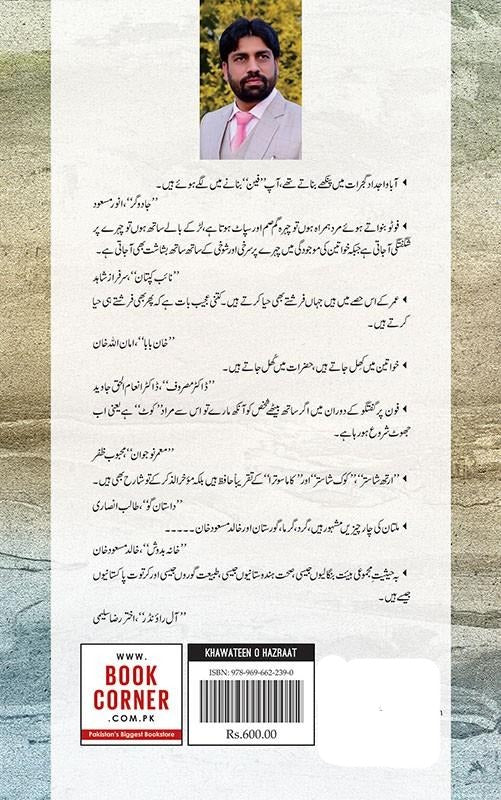 آباؤ اجداد گجرات میں پنکھے بناتے تھے، آپ ’’فین‘‘ بنانے میں لگے ہوئے ہیں۔
’’جادوگر‘‘، انور مسعود
فوٹو بنواتے ہوئے مرد ہمراہ ہوں تو چہرہ گم صم اور سپاٹ ہوتا ہے، لڑکے بالے ساتھ ہوں تو چہرے پر
شگفتگی آجاتی ہے جبکہ خواتین کی موجودگی میں چہرے پر سرخی اور شوخی کے ساتھ ساتھ بشاشت بھی آجاتی ہے۔
’’نائب کپتان‘‘، سرفراز شاہد
عمر کے اس حصے میں ہیں جہاں فرشتے بھی حیا کرتے ہیں۔ کتنی عجیب بات ہے کہ پھر بھی فرشتے ہی حیا
کرتے ہیں۔
’’خان بابا‘‘، امان اللہ خان
خواتین میں کھل جاتے ہیں، حضرات میں گھل جاتے ہیں۔
’’ڈاکٹر مصروف‘‘، ڈاکٹر انعام الحق جاوید
فون پر گفتگو کے دوران میں اگر ساتھ بیٹھے شخص کو آنکھ مارے تو اس سے مراد ’’کوٹ‘‘ ہے یعنی اب
جھوٹ شروع ہو رہا ہے۔
’’معمر نوجوان‘‘، محبوب ظفر
’’ارتھ شاستر‘‘، ’’کوک شاستر‘‘ اور ’’کاما سوترا‘‘ کے تقریباً حافظ ہیں بلکہ مؤخر الذکر کے تو شارح بھی ہیں۔
’’داستان گو‘‘، طالب انصاری
ملتان کی چار چیزیں مشہور ہیں، گرد، گرما، گورستان اور خالد مسعود خان ۔۔۔۔۔
’’خانہ بدوش‘‘، خالد مسعود خان
بہ حیثیت مجموعی ہیئت بنگالیوں جیسی، صحت ہندوستانیوں جیسی، طبیعت گوروں جیسی اور کرتوت پاکستانیوں
جیسے ہیں۔
’’آل راؤنڈر‘‘، اختر رضا سلیمی
WWW.
BOOK
CORNER
.COM.PK
Pakistan's Biggest Bookstore
KHAWATEEN O HAZRAAT
ISBN: 978-969-662-239-0
Rs.600.00